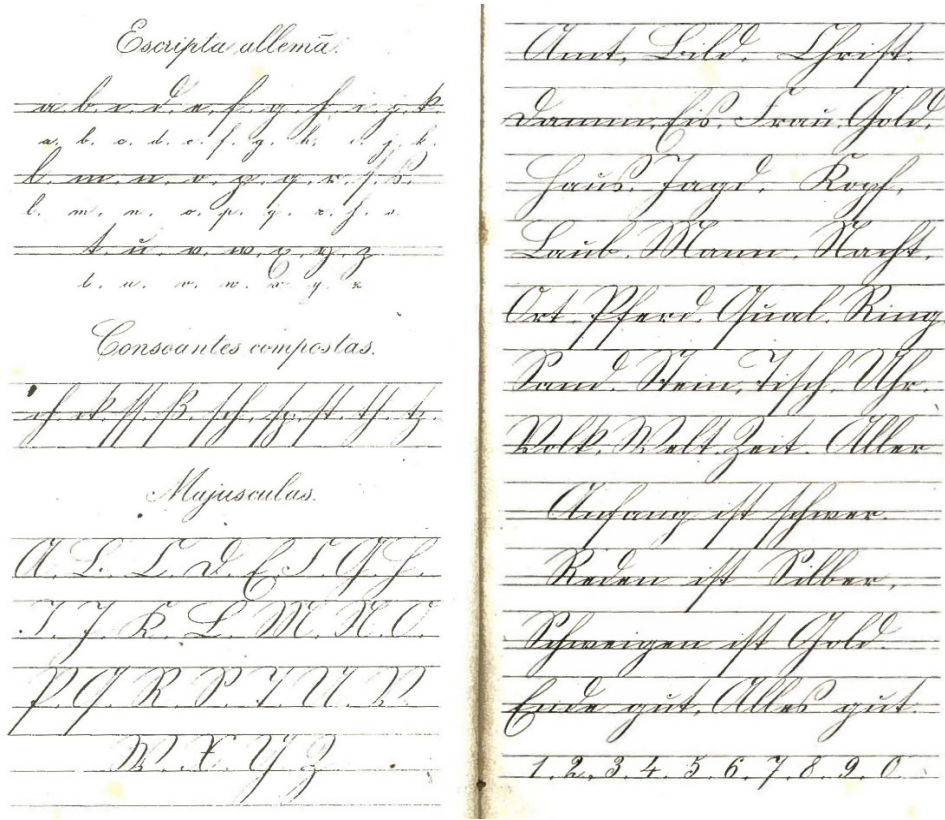 Escripta allemã.
a. b. c. d. e. f. g. h. i. j. k.
a. b. c. d. e. f. g. h. i. j. k.
l. m. n. o. p. q. r. ſ. s.
l. m. n. o. p. q. r. ſ. s.
t. u. v. w. x. y. z
t. u. v. w. x. y. z
Consoantes compostas.
ch. ck. ſſ. ß. ſch. ſp. ſt. th. tz.
Majusculas.
A. B. C. D. E. F. G. H.
I. J. K. L. M. N. O.
P. Q. R. S. T. U. V.
W. X. Y. Z
Amt. Bild. Chriſt.
Damm. Eis. Frau. Gold.
Haus. Jagd. Kopf.
Laub. Mann. Nacht.
Ort. Pferd. Qual. Ring
Sand. Stein. Tiſch. Uhr.
Volk. Welt. Zeit. Aller
Anfang iſt ſchwer.
Reden iſt Silber,
Schweigen iſt Gold.
Ende gut, Alles gut.
1. 2. 3. 4. 5. 6. 7. 8. 9. 0.